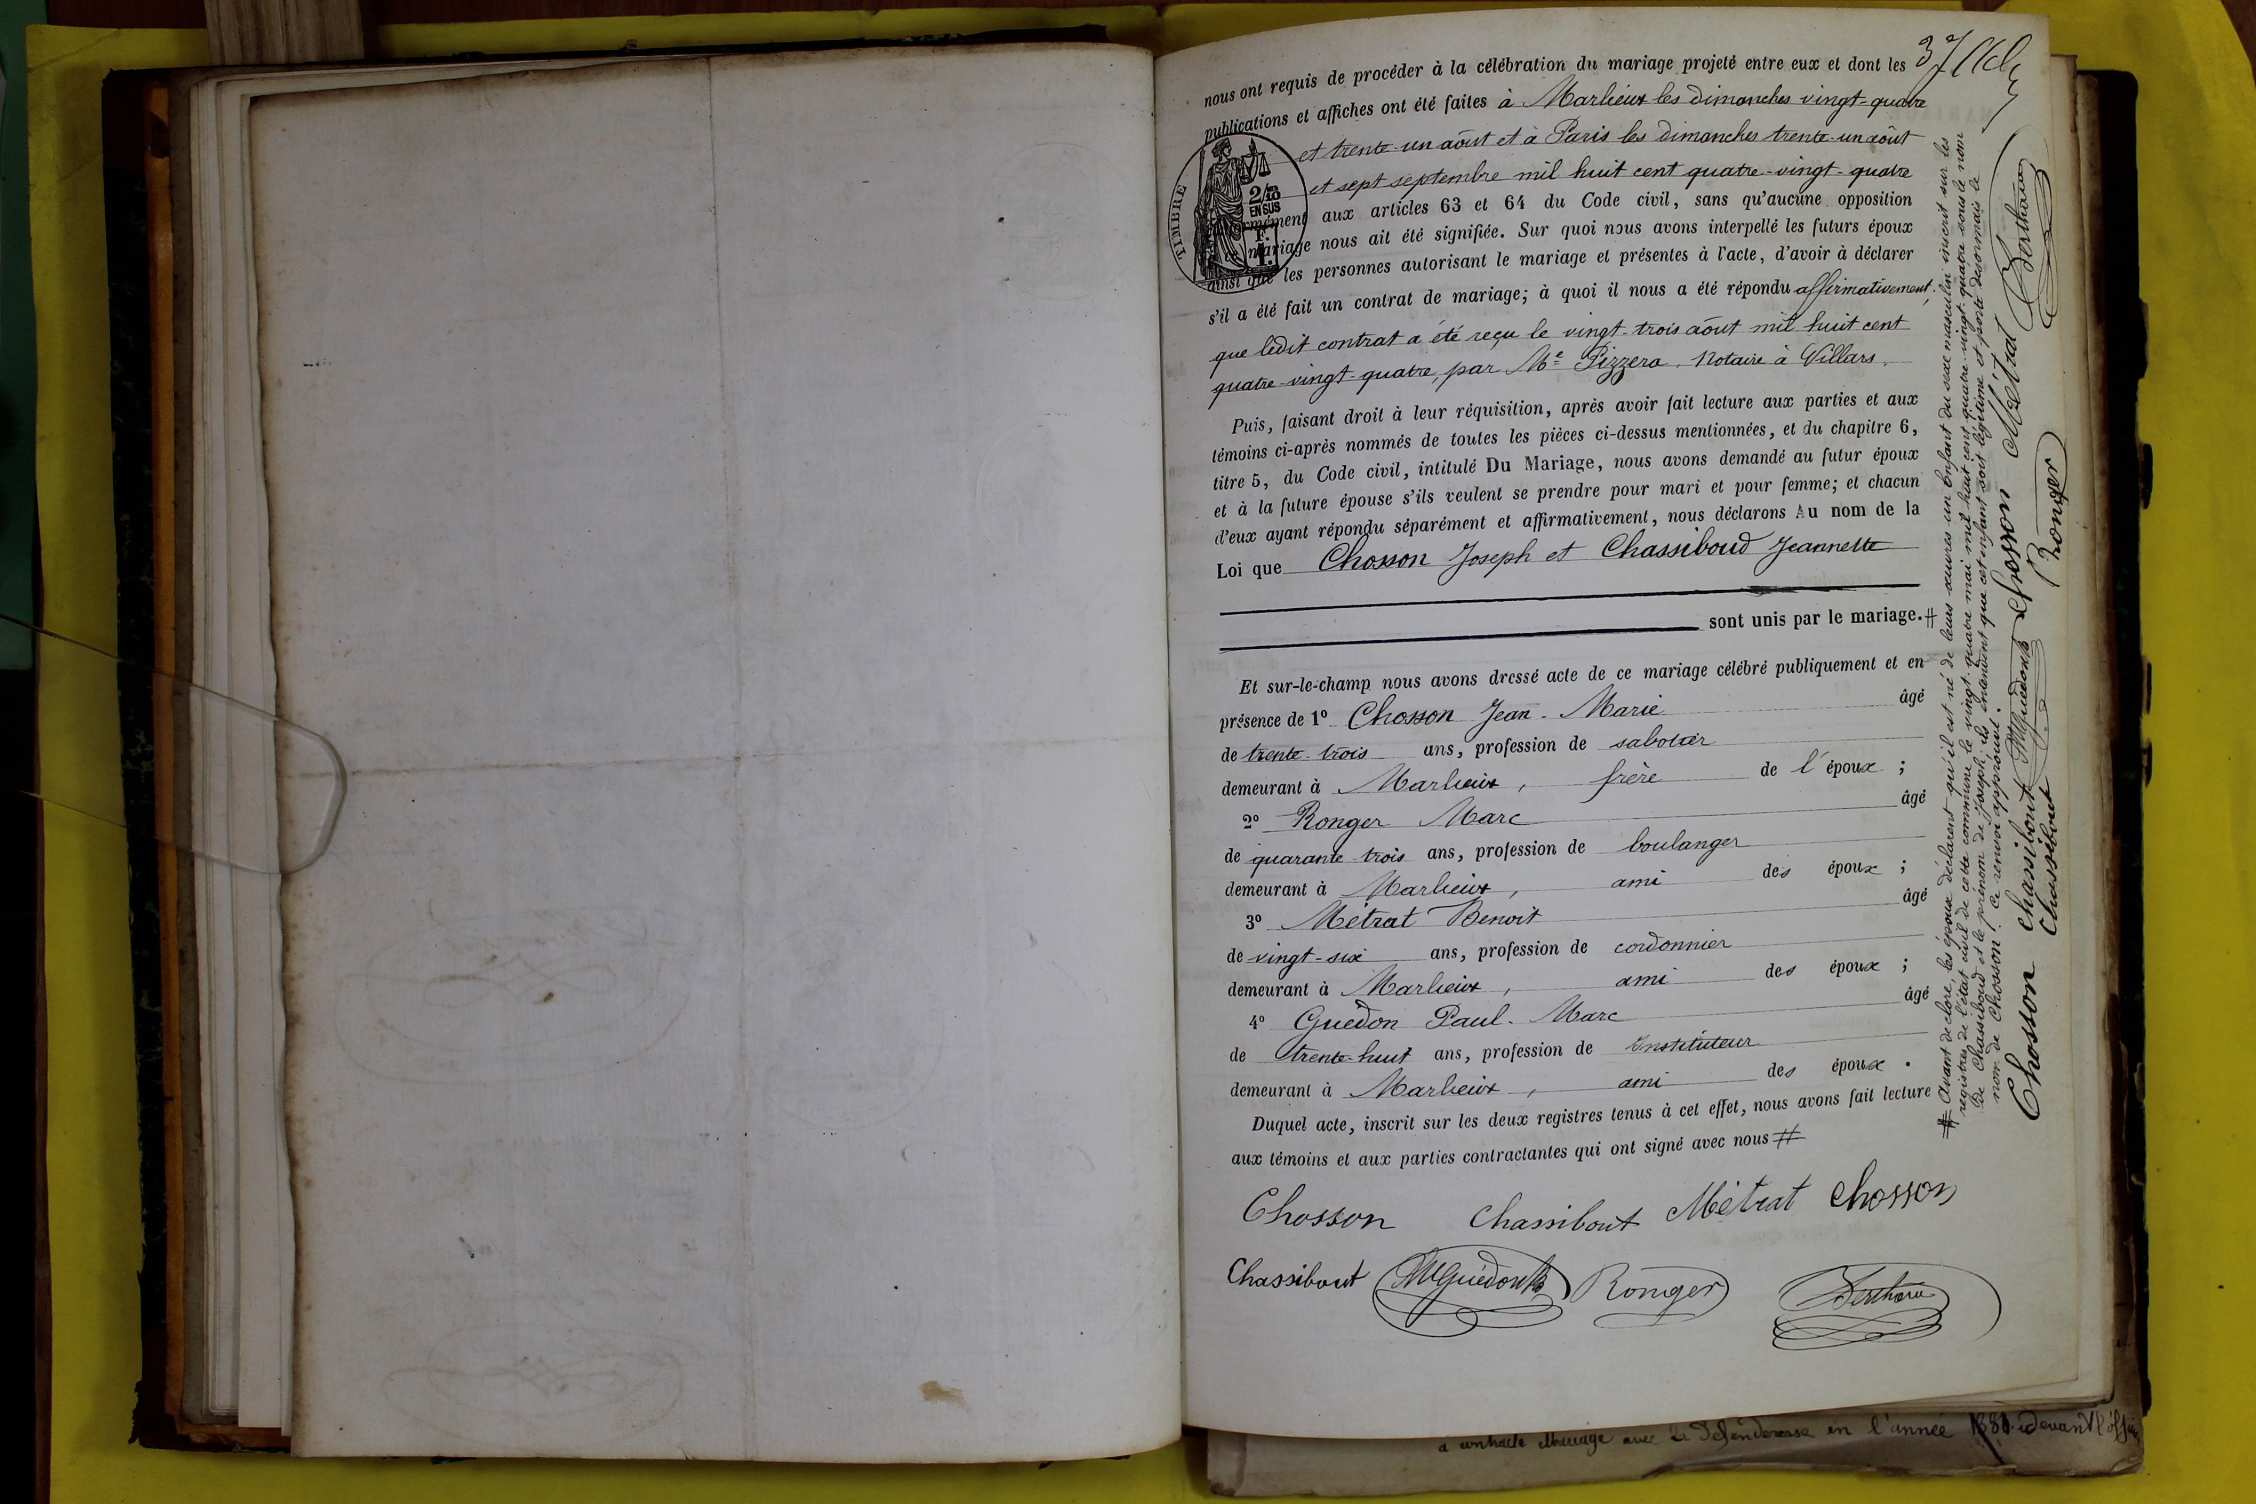 37 
nous ont requis de procéder à la célébration du mariage projeté entre eux et dont les
publications et affiches ont été faites à Marlieux les dimanches vingt-quatre
et trente-un août et à Paris les dimanches trente-un août
et sept septembre mil huit cent quatre-vingt-quatre
TIMBRE
2/10
EN SUS
F.
1.
aux articles 63 et 64 du Code civil, sans qu'aucune opposition
mariage nous ait été signifiée. Sur quoi nous avons interpellé les futurs époux
ainsi que les personnes autorisant le mariage et présentes à l'acte, d'avoir à déclarer
s'il a été fait un contrat de mariage; à quoi il nous a été répondu affirmativement,
que ledit contrat a été reçu le vingt-trois août mil huit cent
quatre-vingt-quatre, par Me Pizzera, Notaire à Villars.
Puis, faisant droit à leur réquisition, après avoir fait lecture aux parties et aux
témoins ci-après nommés de toutes les pièces ci-dessus mentionnées, et du chapitre 6,
titre 5, du Code civil, intitulé Du Mariage, nous avons demandé au futur époux
et à la future épouse s'ils veulent se prendre pour mari et pour femme; et chacun
d'eux ayant répondu séparément et affirmativement, nous déclarons Au nom de la
Loi que Chosson Joseph et Chassiboud Jeannette
sont unis par le mariage. #
Et sur-le-champ nous avons dressé acte de ce mariage célébré publiquement et en
présence de 1º Chosson Jean-Marie âgé
de trente-trois ans, profession de sabotier
demeurant à Marlieux, frère de l'époux ;
2º Ronger Marc âgé
de quarante-trois ans, profession de boulanger
demeurant à Marlieux, ami des époux ;
3º Métrat Benoit âgé
de vingt-six ans, profession de cordonnier
demeurant à Marlieux, ami des époux ;
4º Guédon Paul-Marc âgé
de trente-huit ans, profession de Instituteur
demeurant à Marlieux, ami des époux.
Duquel acte, inscrit sur les deux registres tenus à cet effet, nous avons fait lecture
aux témoins et aux parties contractantes qui ont signé avec nous #
Chosson Chassibout Métrat Chosson
Chassibout Guédon Ronger Berthain
# Avant de clore, les époux déclarent qu'il est né de leurs œuvres un enfant du sexe masculin inscrit sur les
registres de l'état civil de cette commune le vingt-quatre mai mil huit cent quatre-vingt-quatre sous le nom
de Chassiboud et le prénom de Joseph; ils entendent que cet enfant soit légitime et porte désormais le
nom de Chosson. Ce renvoi approuvé.
Chosson Chassibout Guédon Chosson Métrat Berthain
Chassibout Ronger
a contracté Mariage avec la Défenderesse en l'année devant